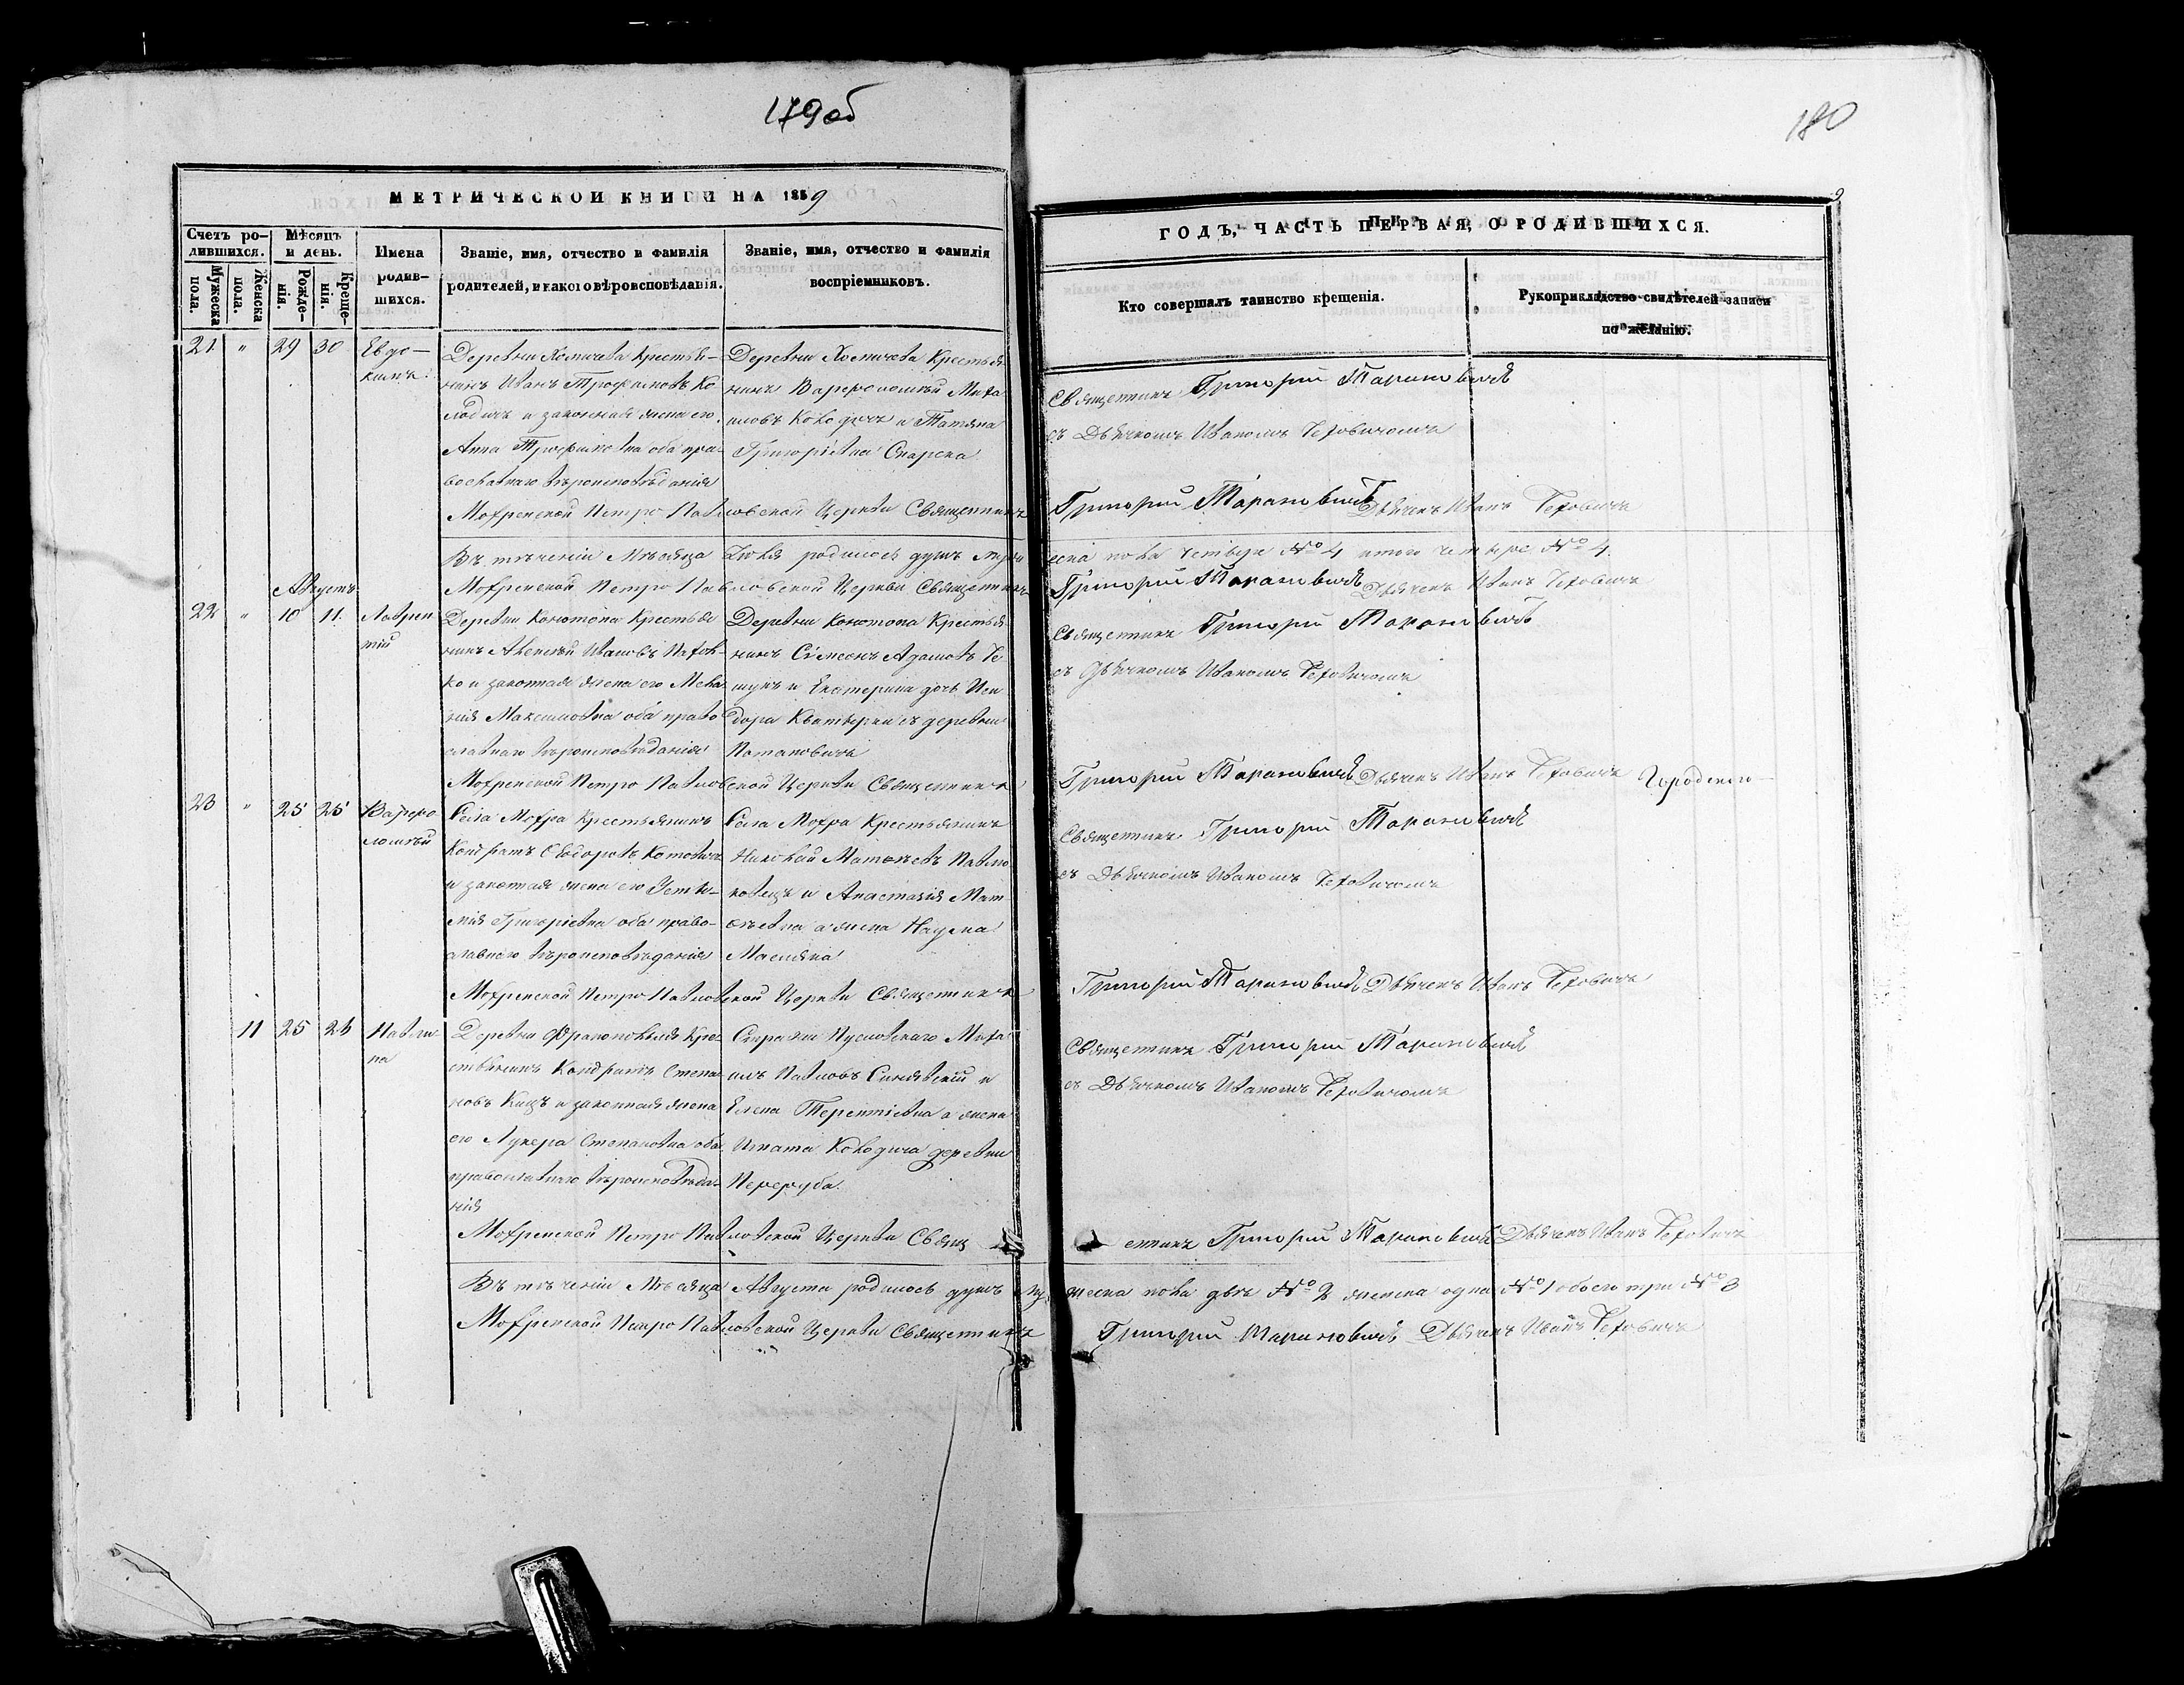 179 об
180
МЕТРИЧЕСКОЙ КНИГИ НА 1859
ГОДЪ, ЧАСТЬ ПЕРВАЯ, О РОДИВШИХСЯ.
Счетъ родившихся.
Мѣсяцъ и день.
Имена родившихся.
Званіе, имя, отчество и фамилія родителей, и какого вѣроисповѣданія.
Званіе, имя, отчество и фамилія воспріемниковъ.
Кто совершалъ таинство крещенія.
Рукоприкладство свидѣтелей записи по желанію.
Мужеска пола.
Женска пола.
Рожденія.
Крещенія.
21 " 29 30 Евдо-
кимъ.
Деревни Хомичева Крестья-
нинъ Иванъ Трофимовъ Ко
лодичъ и законная жена его
Анна Трофимовна оба пра-
вославнаго вѣроисповѣданія
Деревни Хомичева Крестья
нинъ Варфоломѣй Миха
иловъ Колодичъ и Татьяна
Григоріевна
Священникъ Григорий Таранович
съ Дьячкомъ Иваномъ
Мохренской Петро Павловской Церкви Священникъ Григорий Таранович Дьячекъ Иванъ
Въ теченіи Мѣсяца Іюля родилось душъ мужеска пола четыре № 4 итого четыре № 4
Мохренской Петро Павловской Церкви Священникъ Григорий Таранович Дьячекъ Иванъ
Августъ
22 " 10 11. Лаврен
тій
Деревни Конотопа Крестья
нинъ Алексѣй Ивановъ
ко и законная жена его Мела
нія Максимовна оба право
славнаго вѣроисповѣданія
Деревни Конотопа Крестья
нинъ Сѵмеонъ Адамовъ
и Екатерина дочь Иси
дора съ деревни
Потаповичъ
Священникъ Григорий Таранович
съ Дьячкомъ Иваномъ
Мохренской Петро Павловской Церкви Священникъ Григорий Таранович Дьячекъ Иванъ
23 " 25 25 Варфо
ломѣй
Села Мохра Крестьянинъ
Кондратъ Ѳеодоровъ Котовичъ
и законная жена его Устин-
нія Григоріевна оба право-
славнаго вѣроисповѣданія
Села Мохра Крестьянинъ
Николай Матѳѣевъ Павлю
ковецъ и Анастазія Мат
ѳѣевна а жена Наума
Масляка
Священникъ Григорий Таранович
съ Дьячкомъ Иваномъ
Мохренской Петро Павловской Церкви Священникъ Григорий Таранович Дьячекъ Иванъ
11 25 26 Павли
на
Деревни Крес
тьянинъ Кондратъ Степа
новъ Куцъ и законная жена
его Лукера Степановна оба
православнаго вѣроисповѣда-
нія
Стражи Пусловскаго Миха
илъ Павловъ и
Елена Терентіевна а жена
Игнатія Колодича деревни
Переруба.
Священникъ Григорий Таранович
съ Дьячкомъ Иваномъ
Мохренской Петро Павловской Церкви Священникъ Григорий Таранович Дьячекъ Иванъ
Въ теченіи Мѣсяца Августа родилось душъ мужеска пола двѣ № 2 женска одна № 1 обоего три № 3
Мохренской Петро Павловской Церкви Священникъ Григорий Таранович Дьячекъ Иванъ